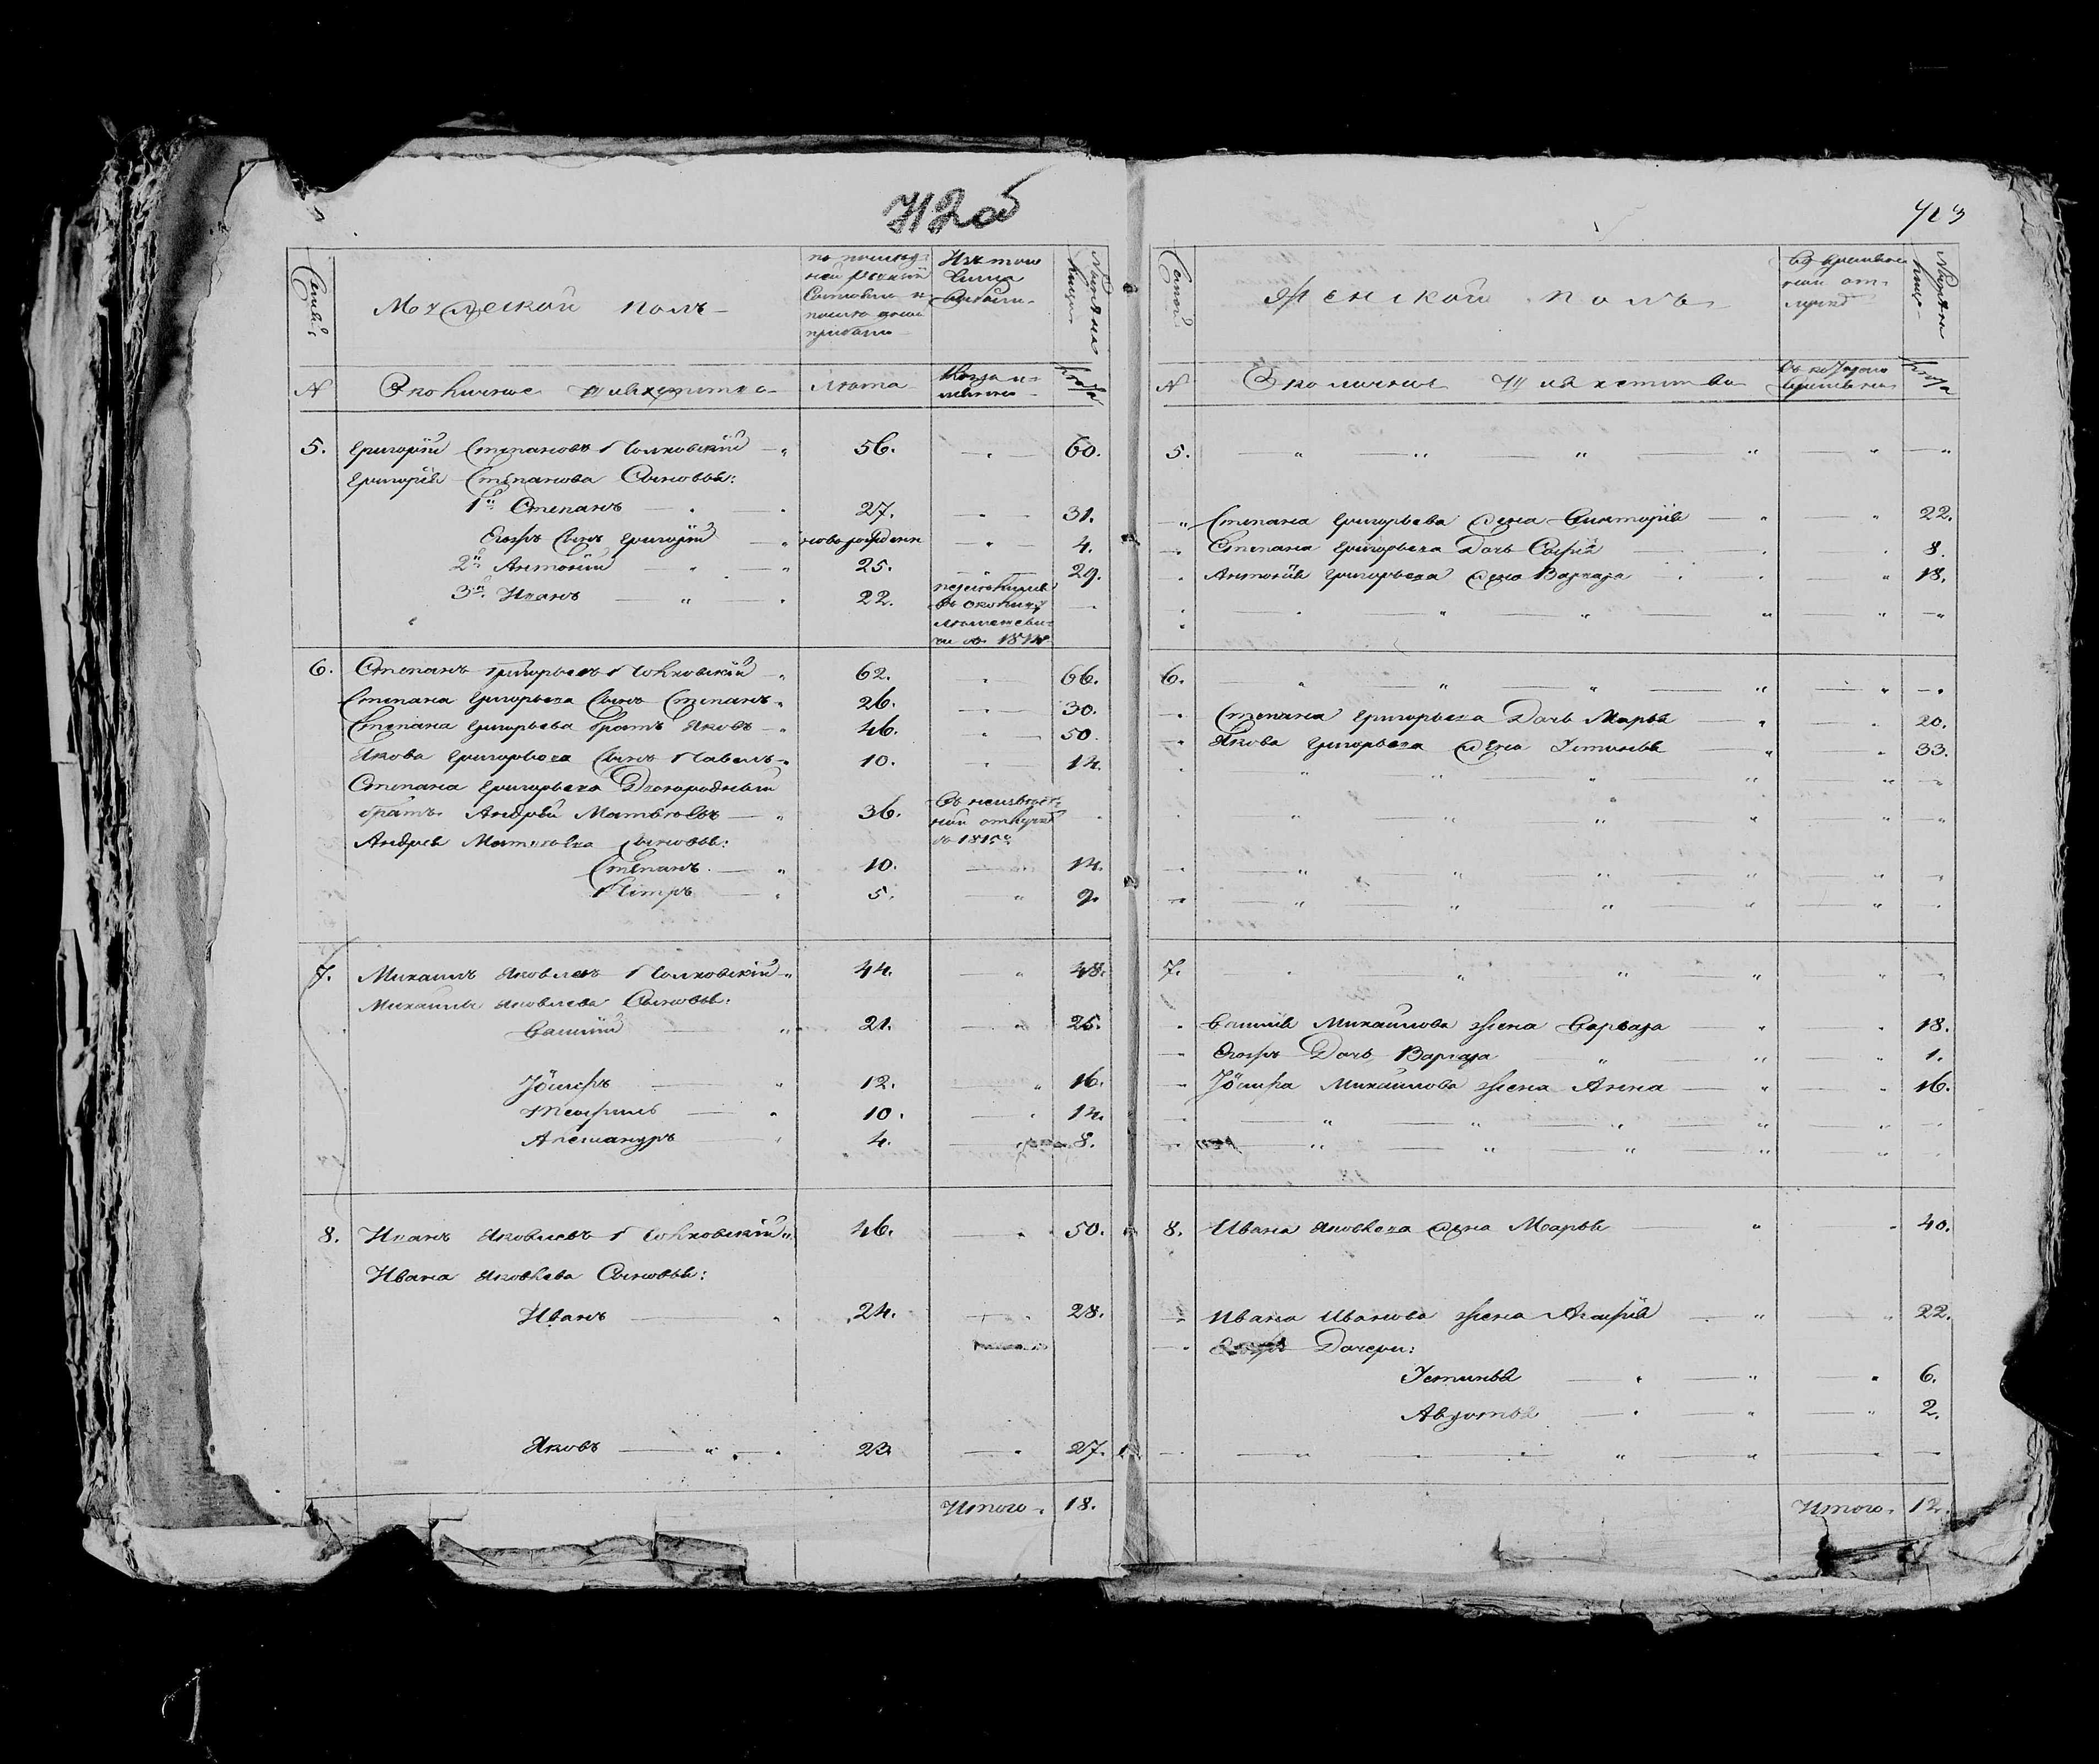 712об
713
Семьи
Мужеской полъ
по послед-
ней ревизіи
состояло и
после оной
прибыло
Изъ того
числа
выбыло
Ныне на
лицо
N
Околичное шляхетство
лѣта
Когда и-
менно
лѣта
5. Григорій Степановъ Полховскій 56. 60.
Григорія Степанова Сыновья:
1й Степанъ 27. 31.
Егожъ Сынъ Григорій новорожден 4.
2й Антоній 25. 29.
3й Иванъ 22.
въ околицу
въ 1814
6. Степанъ Григорьевъ Полховскій 62. 66.
Степана Григорьева Сынъ Степанъ 26. 30.
Степана Григорьева братъ Яковъ 46. 50.
Якова Григорьева Сынъ Павелъ 10. 14.
Степана Григорьева Двоюродный
братъ Андрей Матвѣевъ 36.
въ неизвѣст-
ной отлучкѣ
Андрея Матвѣева Сыновья:
Степанъ 10. 14.
Петръ 5. 9.
7. Михаилъ Яковлевъ Полховскій 44. 48.
Михаила Яковлева Сыновья:
Василій 21. 25.
Іосифъ 12. 16.
Теофиль 10. 14.
Александръ 4. 8.
8. Иванъ Яковлевъ Полховскій 46. 50.
Ивана Яковлева Сыновья:
Иванъ 24. 28.
Яковъ 23. 27.
Итого 18.
Семьи
Женской полъ
Во времен-
ной от-
лучкѣ
Ныне на
лицо
N
Околичное Шляхетство
Съ котораго
времени
лѣта
5.
Степана Григорьева Жена Викторія 22.
Степана Григорьева Дочь Софія 8.
Антонія Григорьева Жена Варвара 18.
6.
Степана Григорьева Дочь Марья 20.
Якова Григорьева Жена Устинья 33.
7.
Василія Михайлова Жена Варвара 18.
Егожъ Дочь Варвара 1.
Іосифа Михайлова Жена Анна 16.
8. Ивана Яковлева Жена Марья 40.
Ивана Иванова Жена Агафія 22.
Дочери:
Устинья 6.
Авдотья 2.
Итого 12.